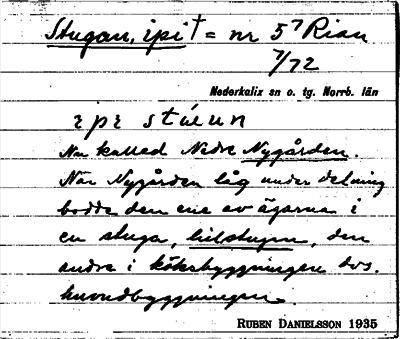 Stugan, ipi† = nr 5⁷ Rian
7/72
Nederkalix sn o. tg. Norrb. län
ɪpɪ stúɐun
Nu kallad Nedre Nygården.
När Nygården låg under delning
bodde den ene av ägarna i
en stuga, lillstugan, den
andre i köksbyggningen dvs.
huvudbyggningen.
RUBEN DANIELSSON 1935